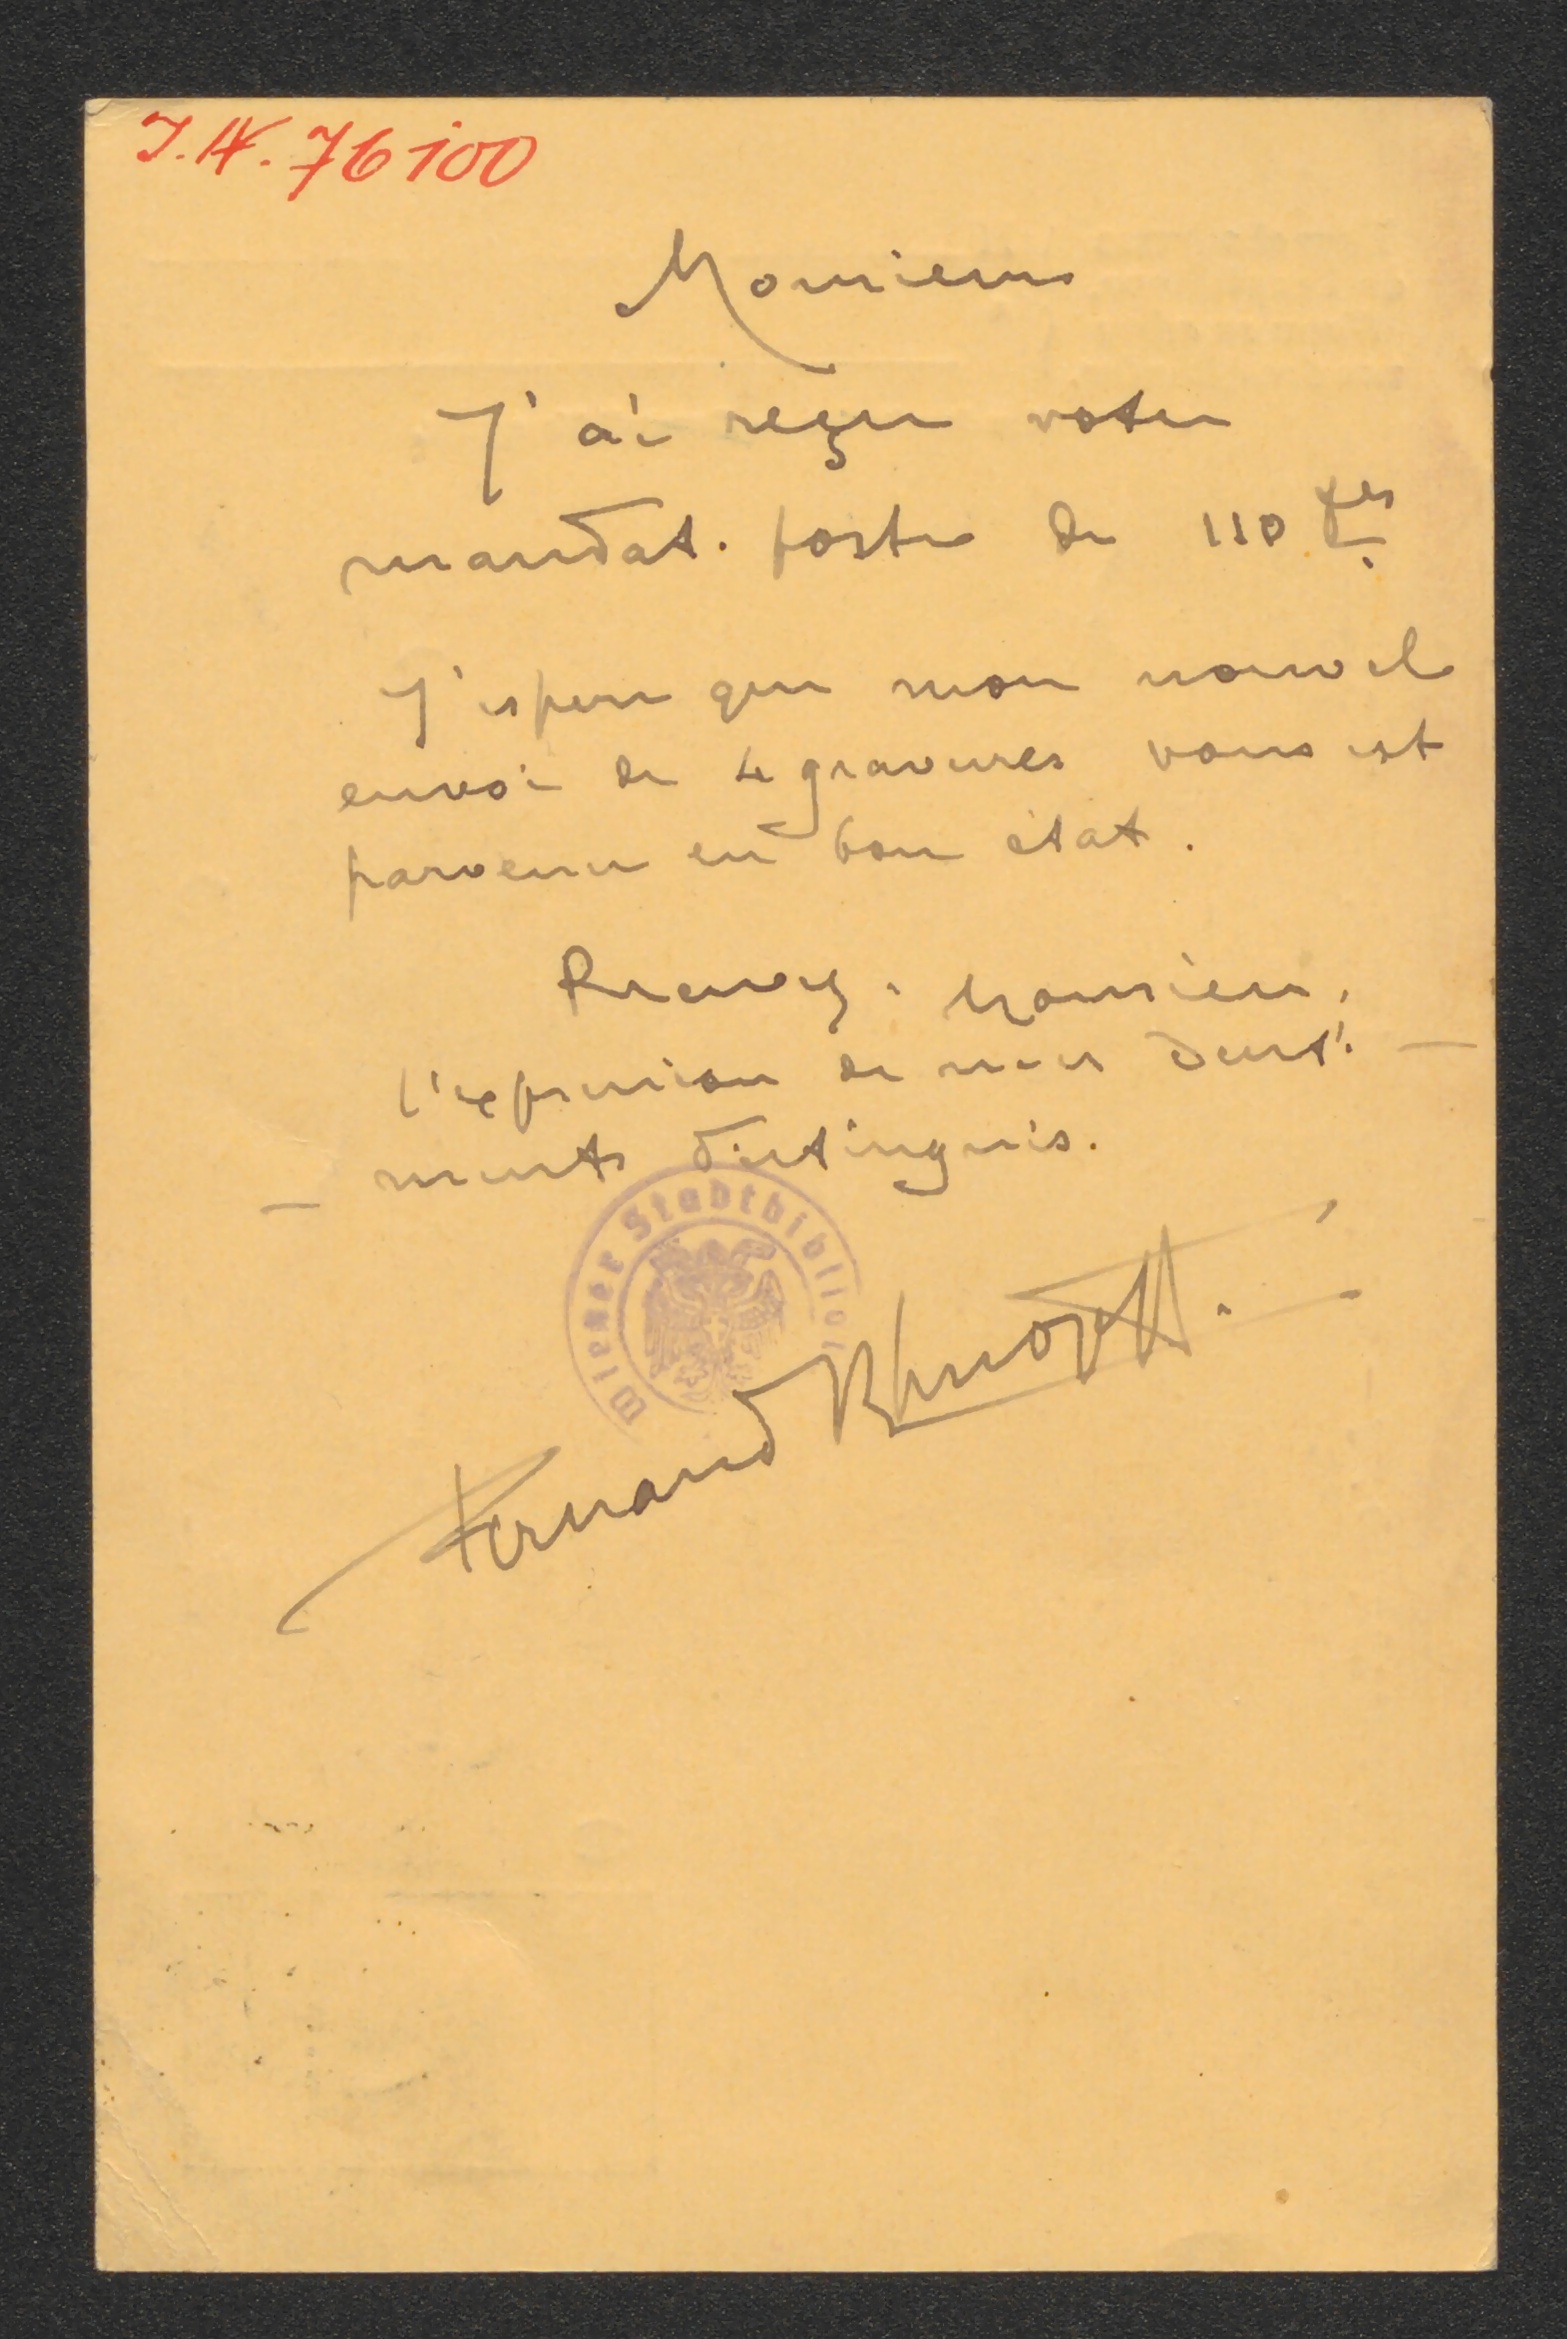 J.N. 76100
Monsieur
J'ai reçu votre
mandat. poste de 110 frs
J'espere que mon nouvel
envoi de 4 gravures vous est
parvenu en bon état.
Recevez, Monsieur,
l'expression de mes senti-
- ments distingués.
Wiener Stadtbibliot
Fernand Khnopff.